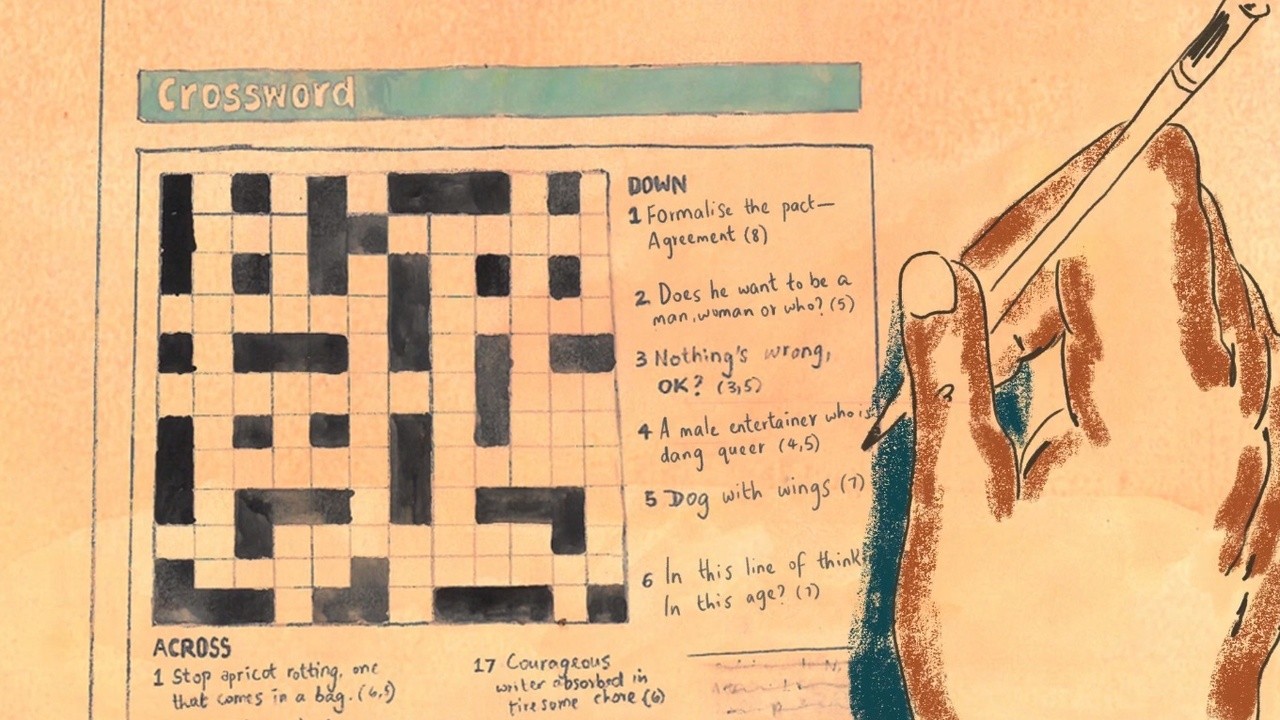 Crossword
DOWN
1 Formalise the pact—
Agreement (8)
2 Does he want to be a
man, woman or who? (5)
3 Nothing's wrong,
OK? (3,5)
4 A male entertainer who is
dang queer (4,5)
5 Dog with wings (7)
6 In this line of think
In this age? (7)
ACROSS
1 Stop apricot rotting, one
that comes in a bag. (6,5)
17 Courageous
writer absorbed in
tiresome chore (6)